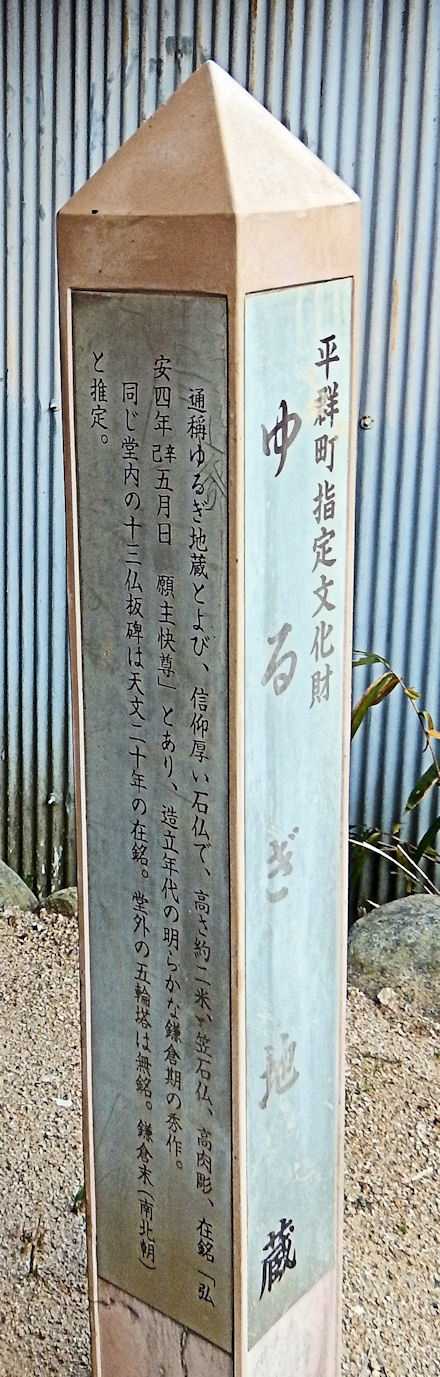 平群町指定文化財
ゆるぎ地蔵
通稱ゆるぎ地蔵とよび、信仰厚い石仏で、高さ約二米、笠石仏、高肉彫、在銘「弘
安四年辛己五月日　願主快尊」とあり、造立年代の明らかな鎌倉期の秀作。
同じ堂内の十三仏板碑は天文二十年の在銘。堂外の五輪塔は無銘。鎌倉末(南北朝)
と推定。